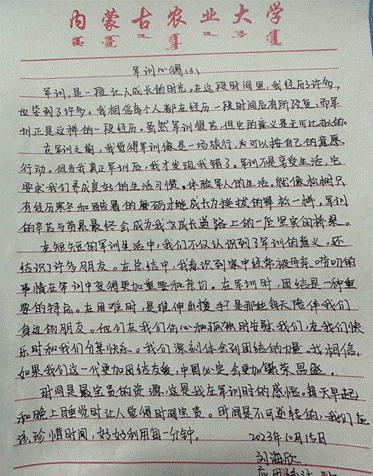 内蒙古农业大学
军训心得(3)
军训,是一段让人成长的时光。在这段时间里,我经历了许多,
也学到了许多。我相信每个人都在经历一段时间后有所改变,而军
训正是这样的一段经历。虽然军训很苦,但它的意义是无可比拟的。
在军训之前,我觉得军训像是一场旅行,可以按自己的意愿
行动。但当我真正军训后,我才发现我错了。军训不是享受生活,它
要求我们养成良好的生活习惯。体验军人的生活。就像松树只
有经历寒冬和酷暑的磨砺才能成长为挺拔的翠松一样,军训
的辛苦与劳累最终会成为我们成长道路上的一座坚实的桥梁。
在短短的军训生活中,我们不仅认识到了军训的意义,还
结识了许多朋友。在总结中,我意识到家中经常被唠叨的
事情在军训中变得更加重要和亲切。在军训时,团结是一种重
要的特点。在困难时,是谁伸出援手?是那些每天陪伴我们
身边的朋友。他们在我们伤心和孤独时安慰我们,在我们快
乐时和我们分享快乐。我们深刻体会到团结的力量。我相信,
如果我们这一代更加团结友爱,中国必定会更加繁荣昌盛。
时间是最宝贵的资源,这是我在军训时的感悟。每天早起
和晚上睡觉时让人觉得时间宝贵。时间是不可逆转的,我们应
该珍惜时间,好好利用每一分钟。
2023年10月15日